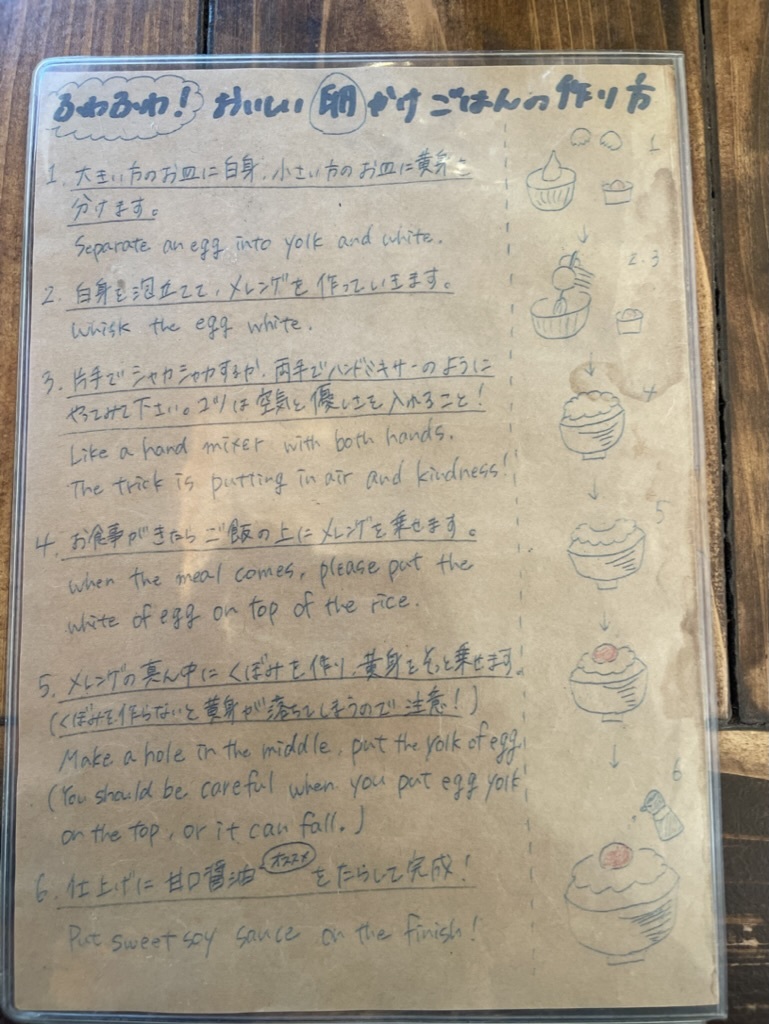 ふわふわ! おいしい 卵 かけ ごはんの 作り方
1. 大きい方のお皿に白身、小さい方のお皿に黄身と
分けます。
Separate an egg into yolk and white.
2. 白身を泡立てて、メレンゲを作っていきます。
Whisk the egg white.
3. 片手でシャカシャカするか、両手でハンドミキサーのように
やってみて下さい。コツは空気と優しさを入れること!
Like a hand mixer with both hands.
The trick is putting in air and kindness!
4. お食事がきたらご飯の上にメレンゲを乗せます。
when the meal comes, please put the
white of egg on top of the rice.
5. メレンゲの真ん中にくぼみを作り、黄身をそっと乗せます。
(くぼみを作らないと黄身が落ちてしまうので注意!)
Make a hole in the middle, put the yolk of egg.
(You should be careful when you put egg yolk
on the top, or it can fall.)
6. 仕上げに甘口醤油 オススメ をたらして完成!
Put sweet soy sauce on the finish!
1
2.3
4
5
6